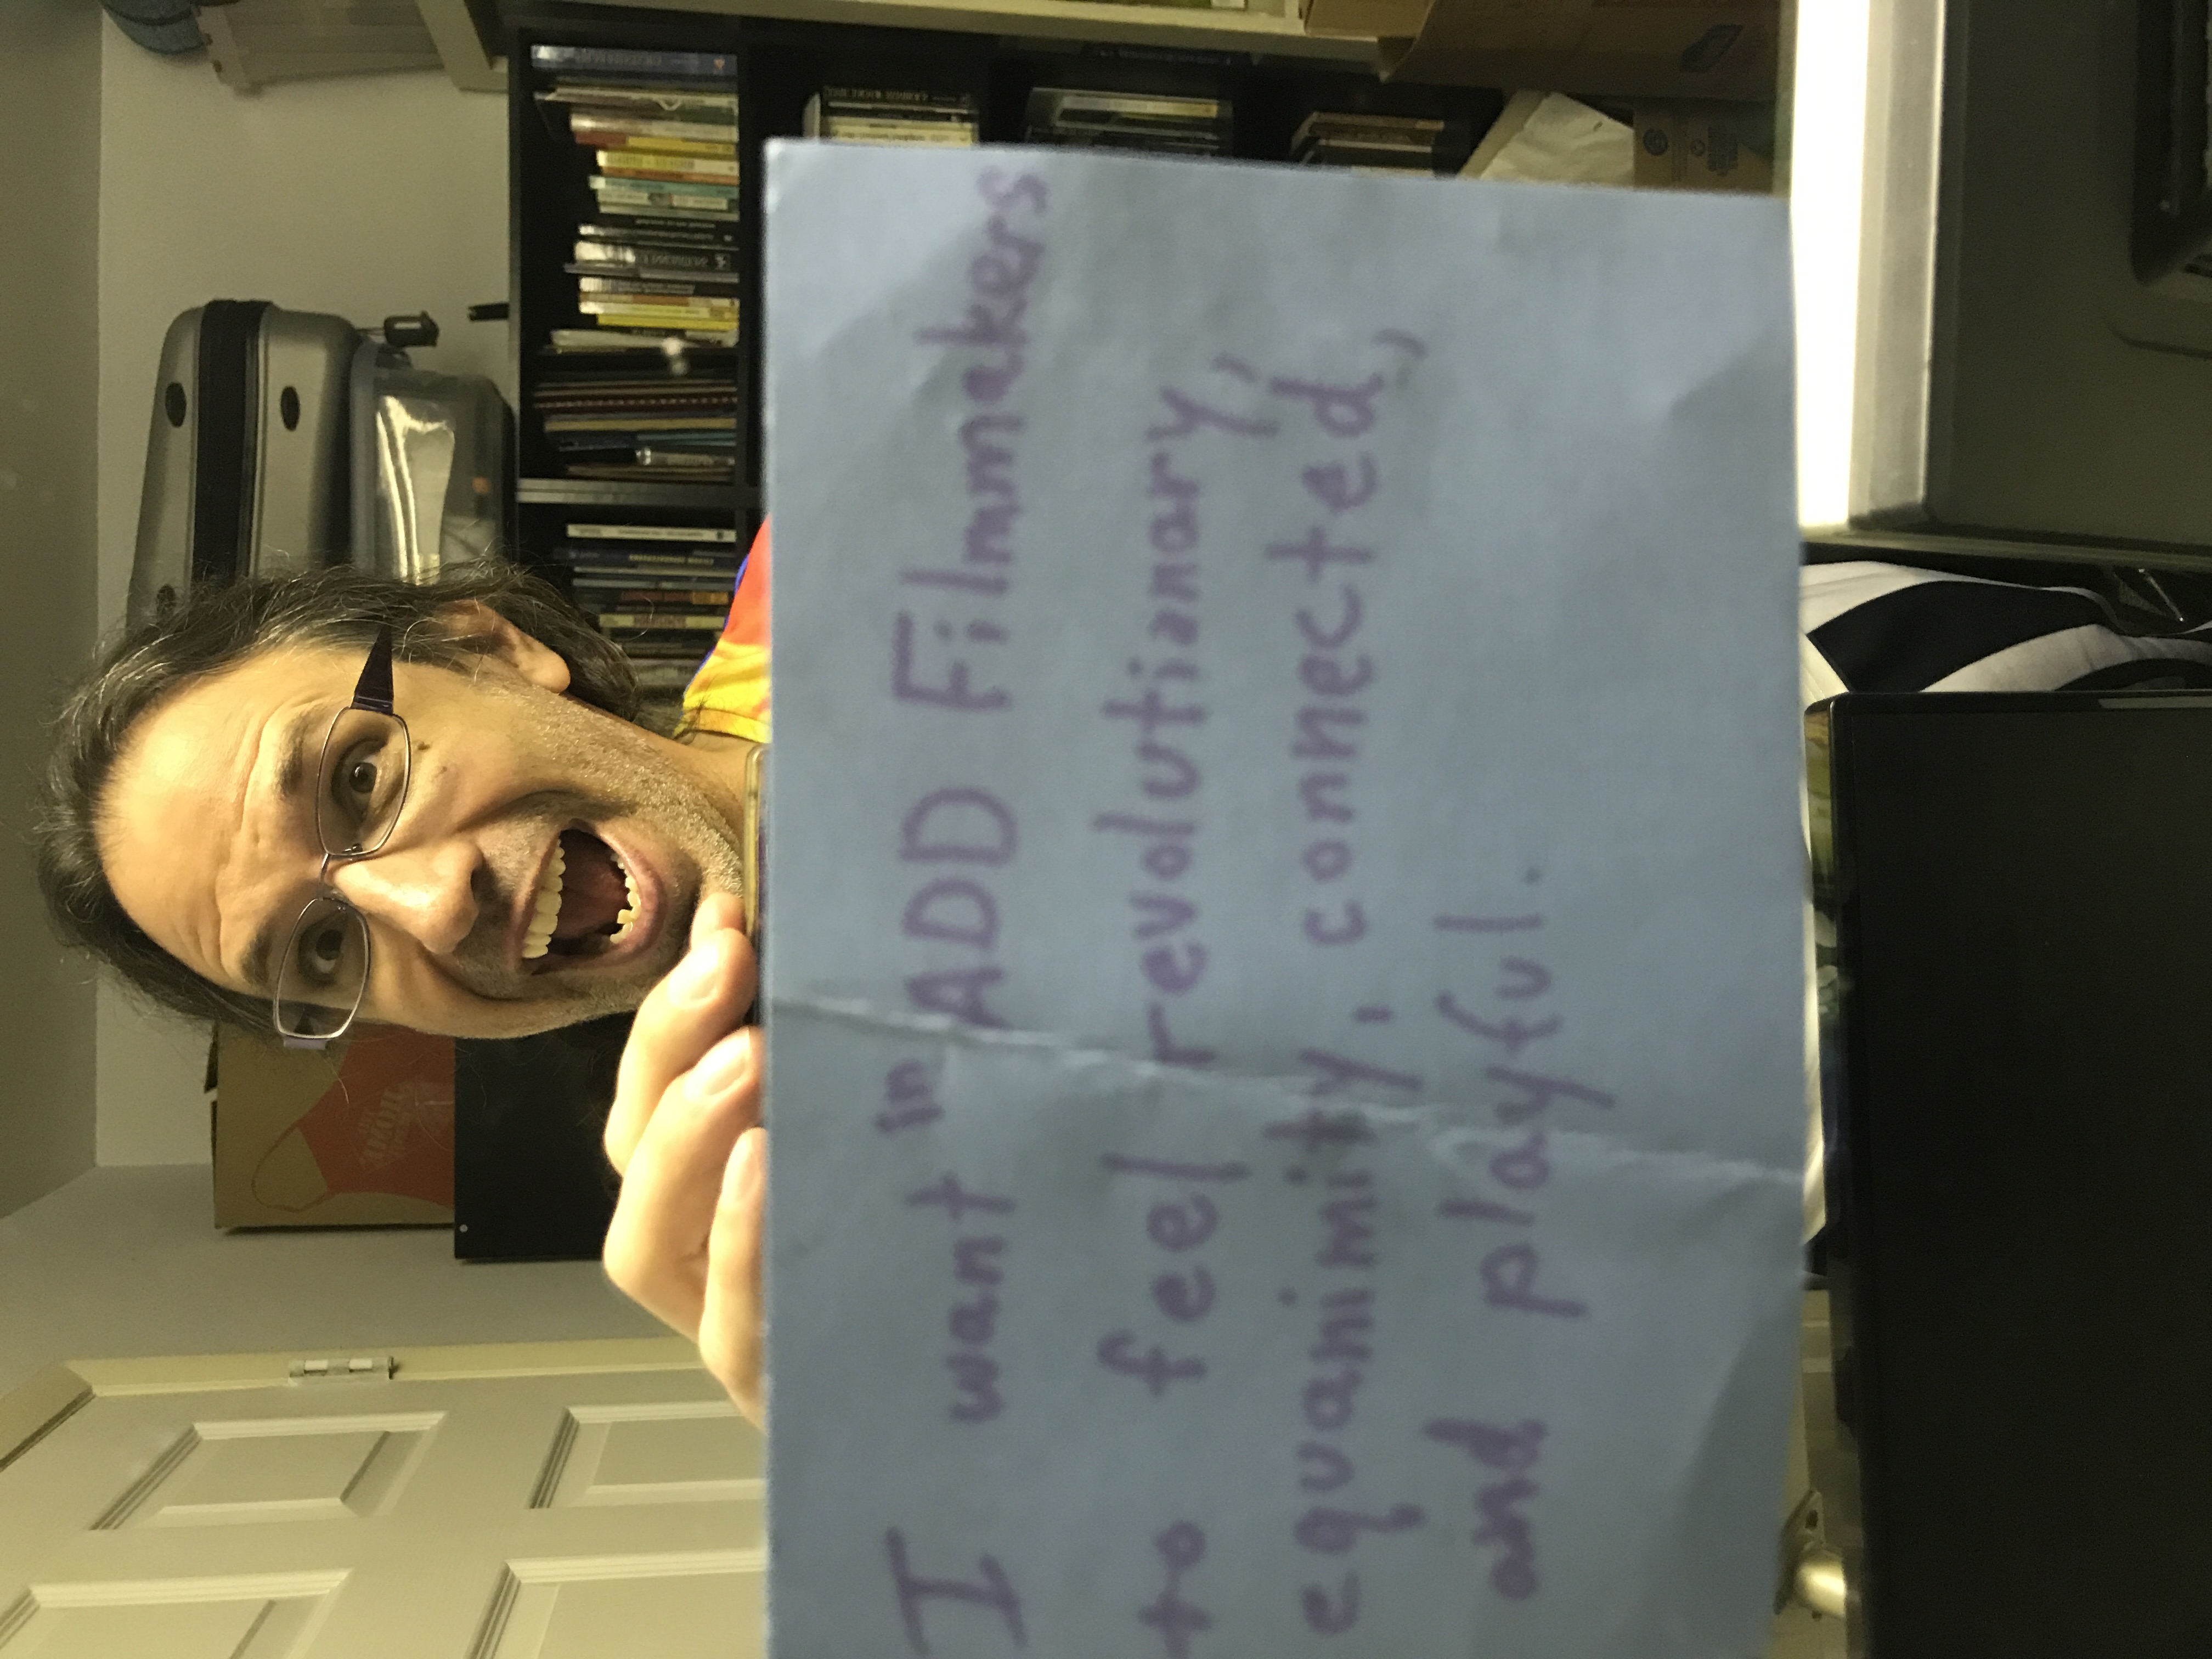 THE
HOME
I want in ADD Filmmakers
to feel revolutionary,
equanimity, connected,
and playful.